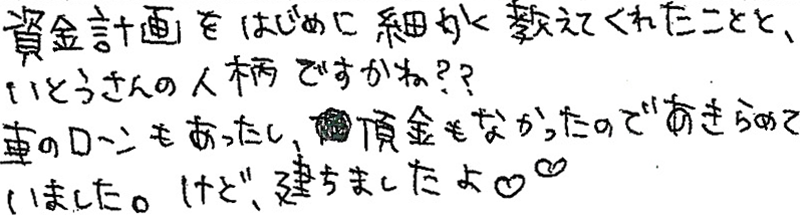 資金計画をはじめに細かく教えてくれたことと、
いとうさんの人柄ですかね??
車のローンもあったし、頂金もなかったのであきらめて
いました。けど、建ちましたよ♡♡